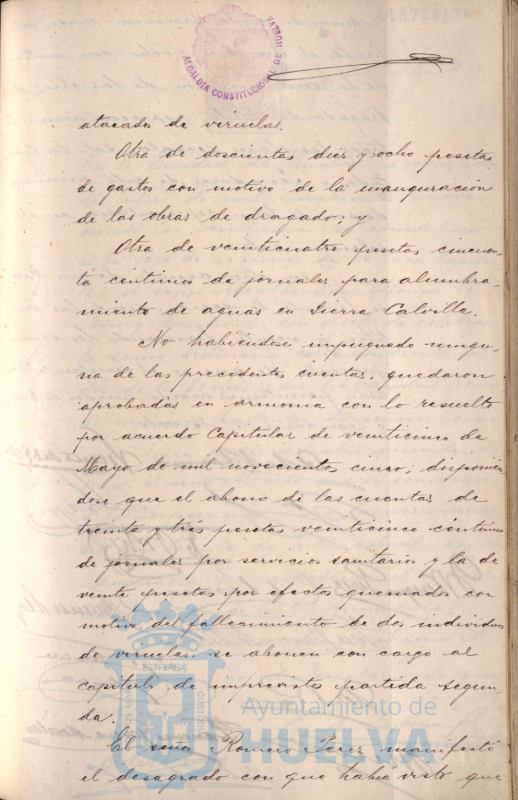 ALCALDÍA CONSTITUCIONAL DE HUELVA
atacados de viruelas.
Otra de doscientas diez y ocho pesetas
de gastos con motivo de la inauguración
de las obras de dragado; y
Otra de veinticuatro pesetas cincuen-
ta céntimos de jornales para alumbra-
miento de aguas en Sierra Calvilla.
No habiéndose impugnado ningu-
na de las precedentes cuentas, quedaron
aprobadas en armonia con lo resuelto
por acuerdo Capitular de veinticinco de
Mayo de mil novecientos cinco; disponién-
dose que el abono de las cuentas de
treinta y tres pesetas veinticinco céntimos
de jornales por servicios sanitarios y la de
veinte pesetas por efectos quemados con
motivo del fallecimiento de dos individuos
de viruelas se abonen con cargo al
capítulo de imprevistos partida segun-
da.
El señor Romero Perez manifestó
el desagrado con que había visto que
Ayuntamiento de
HUELVA